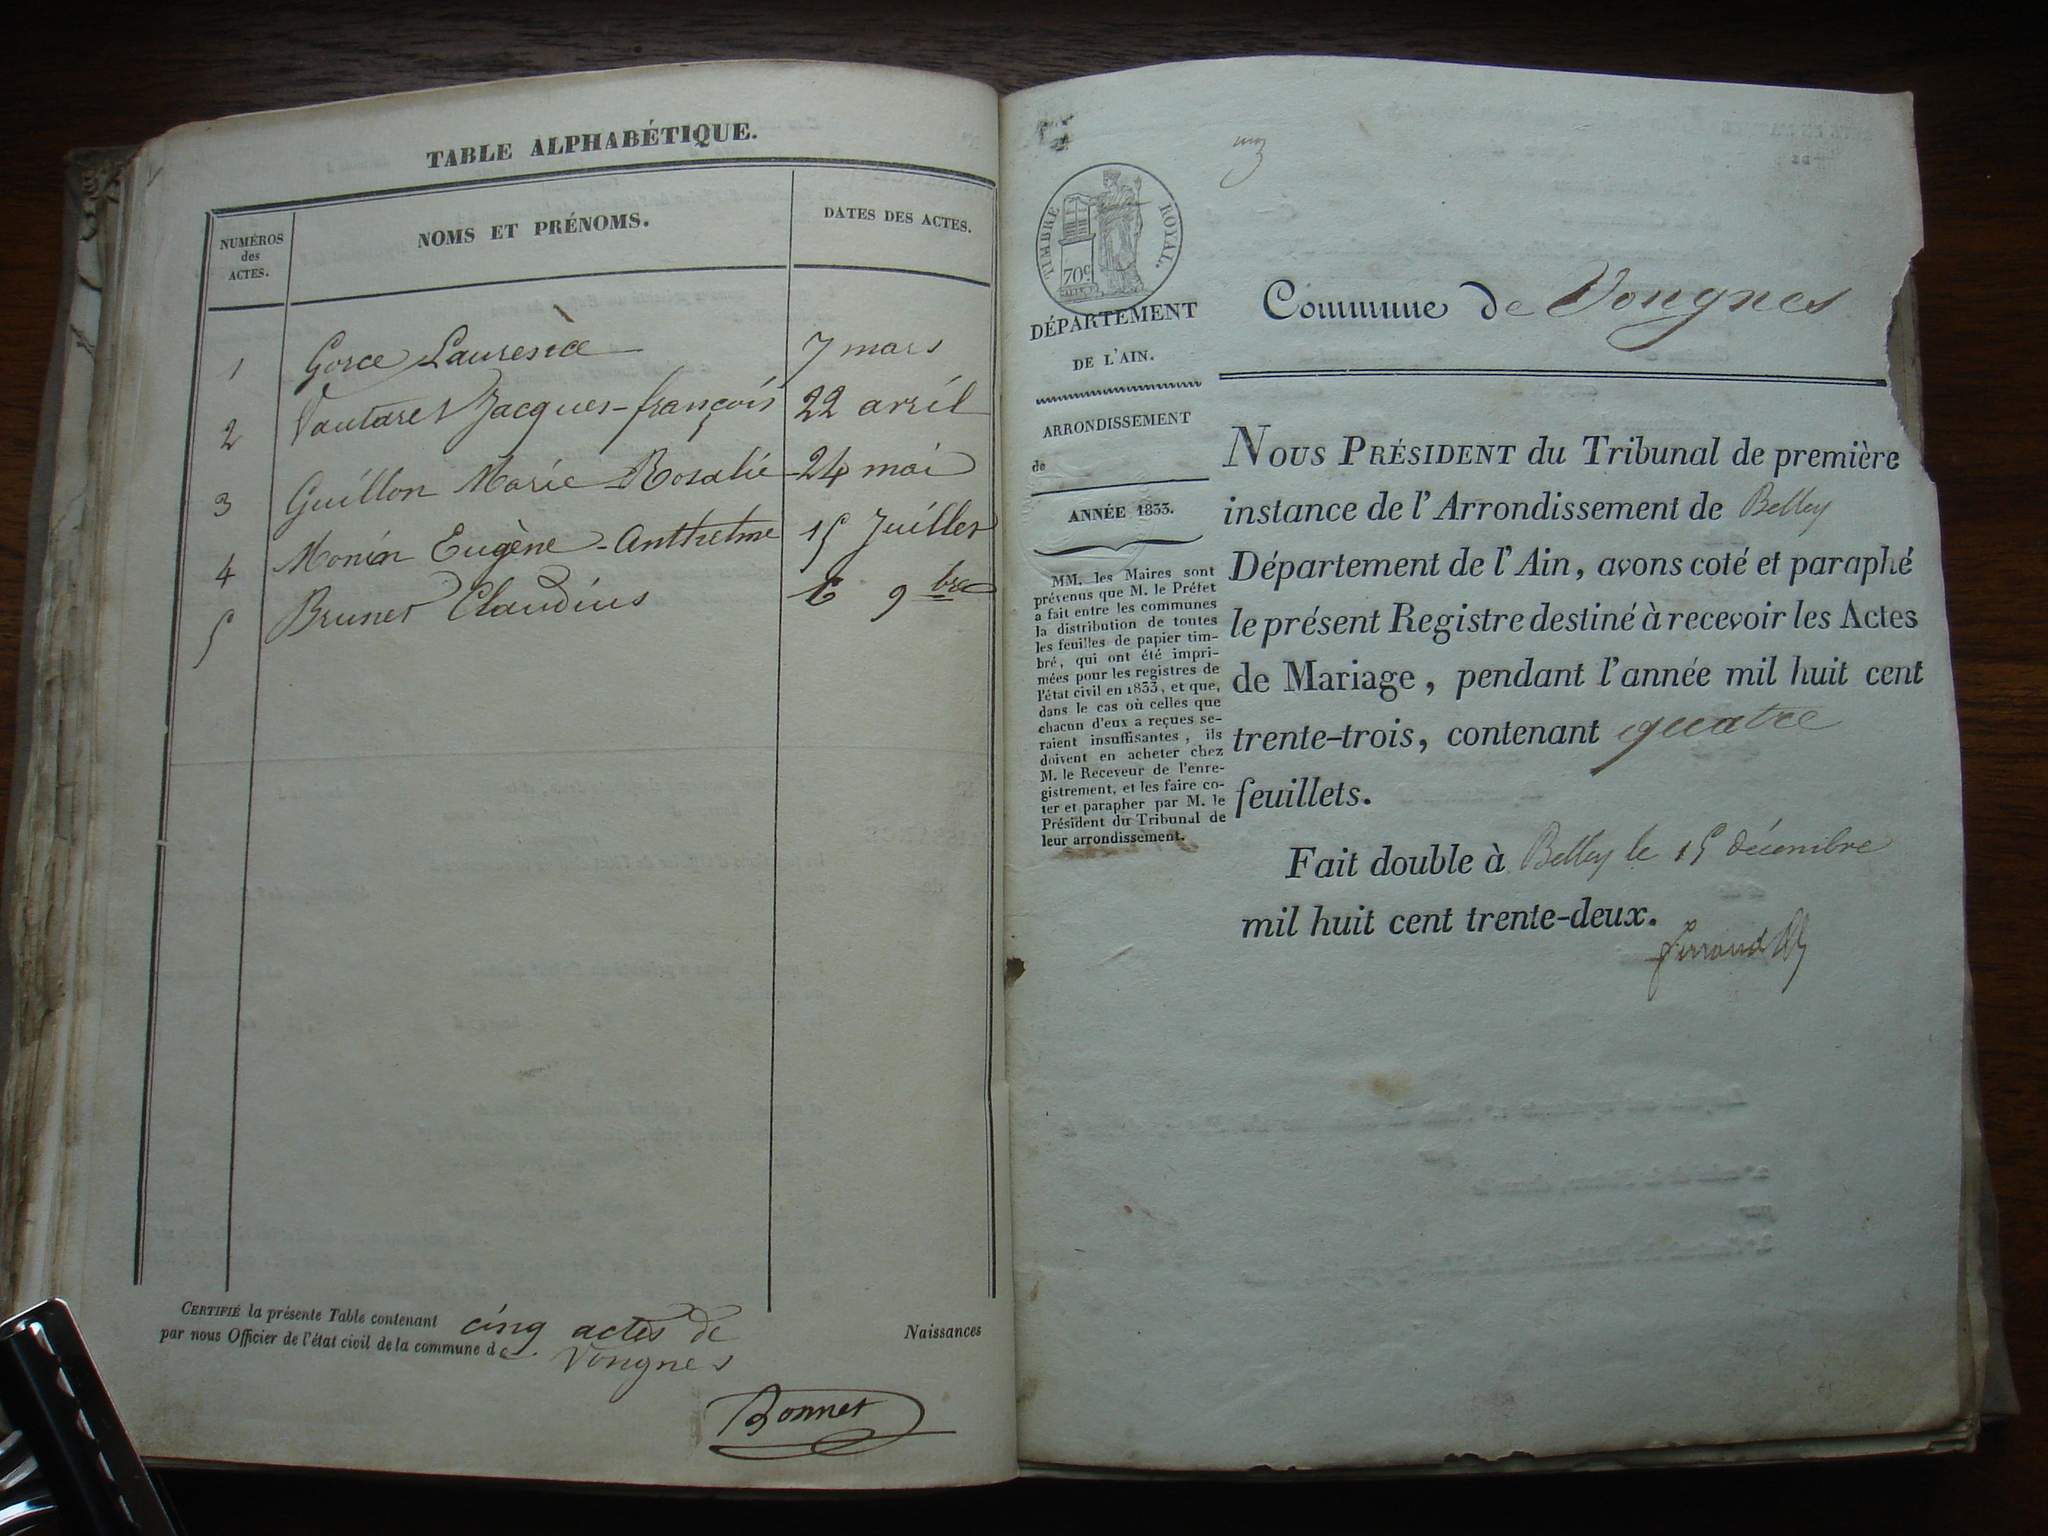 TABLE ALPHABÉTIQUE.
NUMÉROS
des
ACTES.
NOMS ET PRÉNOMS.
DATES DES ACTES.
1 Gorce Laurence 7 mars
2 Vautaret Jacques-françois 22 avril
3 Guillon Marie Rosalie 24 mai
4 Monin Eugène-Anthelme 15 Juillet
5 Brunet Claudius 9bre
CERTIFIÉ la présente Table contenant cinq actes de
par nous Officier de l'état civil de la commune de Vongnes
Naissances
Bonnet
TIMBRE ROYAL.
70c
DÉPARTEMENT
DE L'AIN.
ARRONDISSEMENT
de
ANNÉE 1833.
MM. les Maires sont
prévenus que M. le Préfet
a fait entre les communes
la distribution de toutes
les feuilles de papier tim-
bré, qui ont été impri-
mées pour les registres de
l'état civil en 1833, et que,
dans le cas où celles que
chacun d'eux a reçues se-
raient insuffisantes, ils
doivent en acheter chez
M. le Receveur de l'enre-
gistrement, et les faire co-
ter et parapher par M. le
Président du Tribunal de
leur arrondissement.
Commune de Vongnes
NOUS PRÉSIDENT du Tribunal de première
instance de l'Arrondissement de Belley
Département de l'Ain, avons coté et paraphé
le présent Registre destiné à recevoir les Actes
de Mariage, pendant l'année mil huit cent
trente-trois, contenant quatre
feuillets.
Fait double à Belley le 15 décembre
mil huit cent trente-deux.